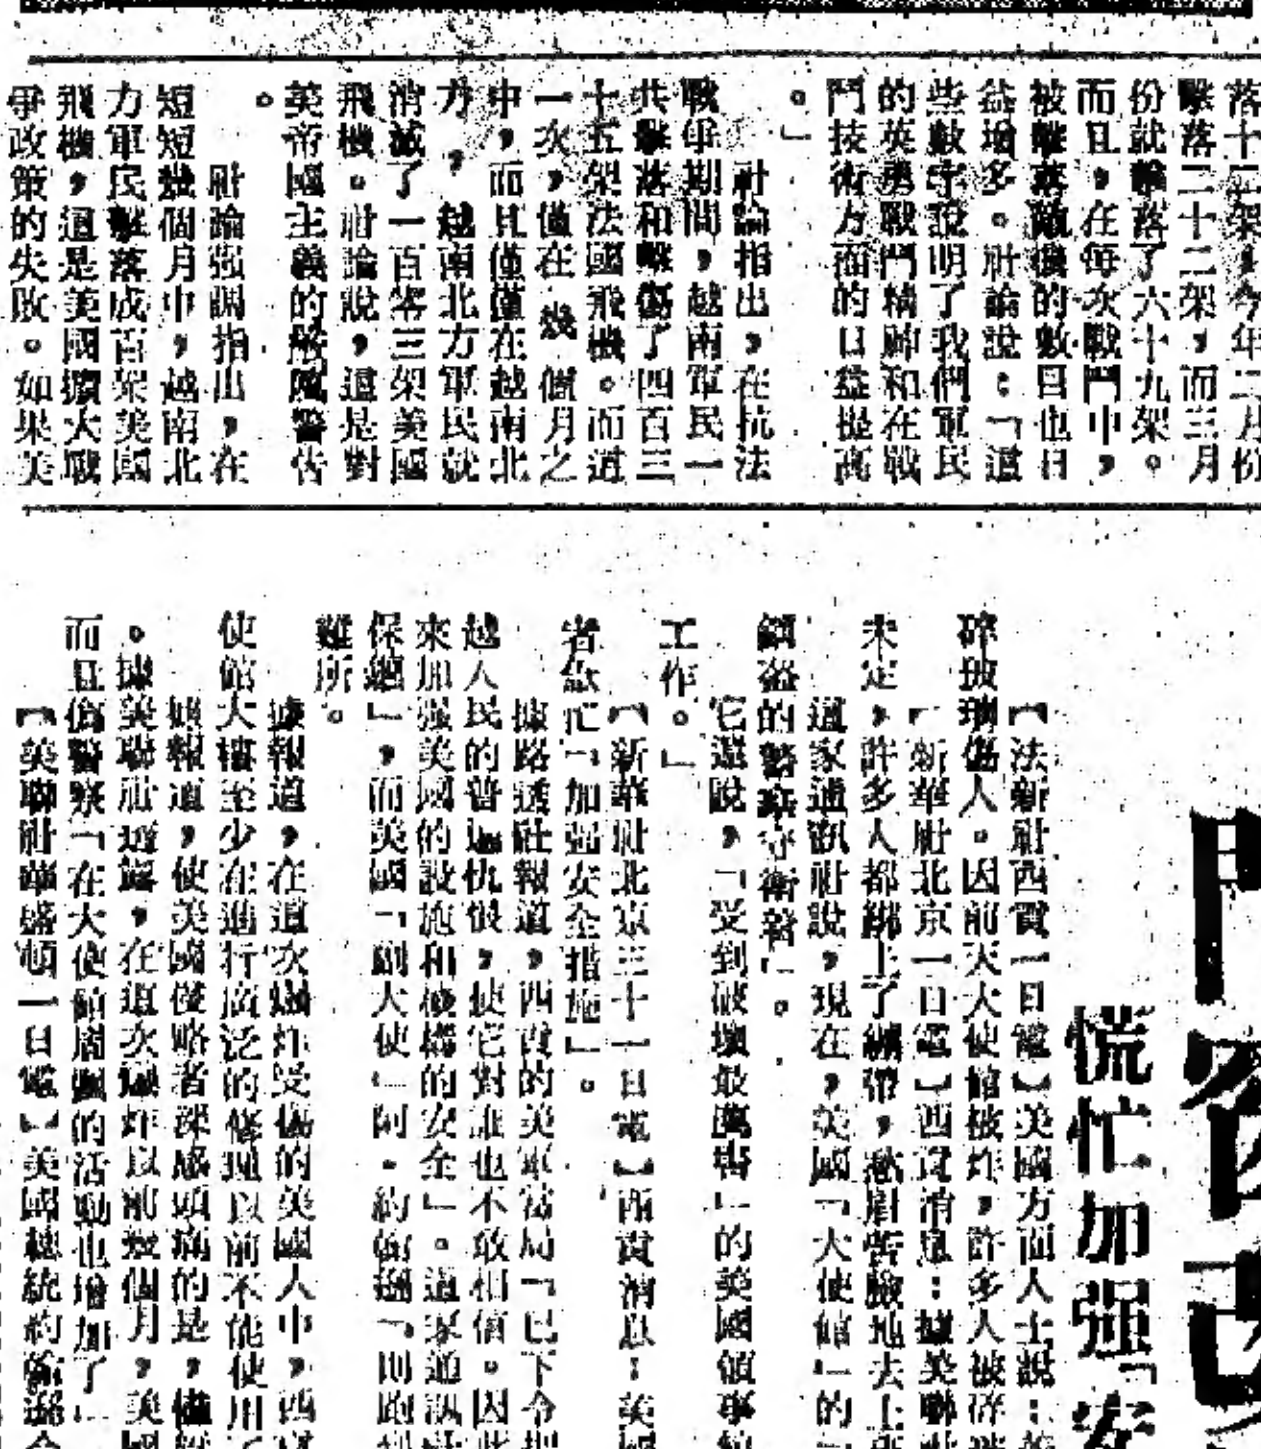 落十二架，今年二月份
擊落二十二架，而三月
份就擊落了六十九架。
而且，在每次戰鬥中，
被擊落敵機的數目也日
益增多。社論說：「這
些數字說明了我們軍民
的英勇戰鬥精神和在戰
鬥技術方面的日益提高
。」
社論指出，在抗法
戰爭期間，越南軍民一
共擊落和擊傷了四百三
十五架法國飛機。而這
一次，僅在幾個月之
中，而且僅僅在越南北
方，越南北方軍民就
消滅了一百零三架美國
飛機。社論說，這是對
美帝國主義的嚴厲警告
。
社論强調指出，在
短短幾個月中，越南北
力軍民擊落成百架美國
飛機，這是美國擴大戰
爭政策的失敗。如果美
慌忙加强「安
【法新社西貢一日電】美國方面人士說：
碎玻璃傷人。因前天大使館被炸，許多人被碎
【新華社北京一日電】西貢消息：據美聯社
未定，許多人都綁上了繃帶，愁眉苦臉地去上
這家通訊社說，現在，美國「大使館」的
鎖盔的警察守衛着」。
它還說，「受到破壞最厲害」的美國領事
工作。」
【新華社北京三十一日電】西貢消息：美
者急忙「加强安全措施」。
據路透社報道，西貢的美軍當局「已下令
越人民的普遍仇恨，使它對誰也不敢相信。因此
來加强美國的設施和機構的安全」。這家通訊社
保鏢」，而美國「副大使」阿·約翰遜「則跑到
難所。
據報道，在這次爆炸受傷的美國人中，西貢
使館大樓至少在進行廣泛的修理以前不能使用
據報道，使美國侵略者深感頭痛的是，儘管
。據美聯社透露，在這次爆炸以前幾個月，美國
而且偽警察「在大使館周圍的活動也增加了」
【美聯社華盛頓一日電】美國總統約翰遜今